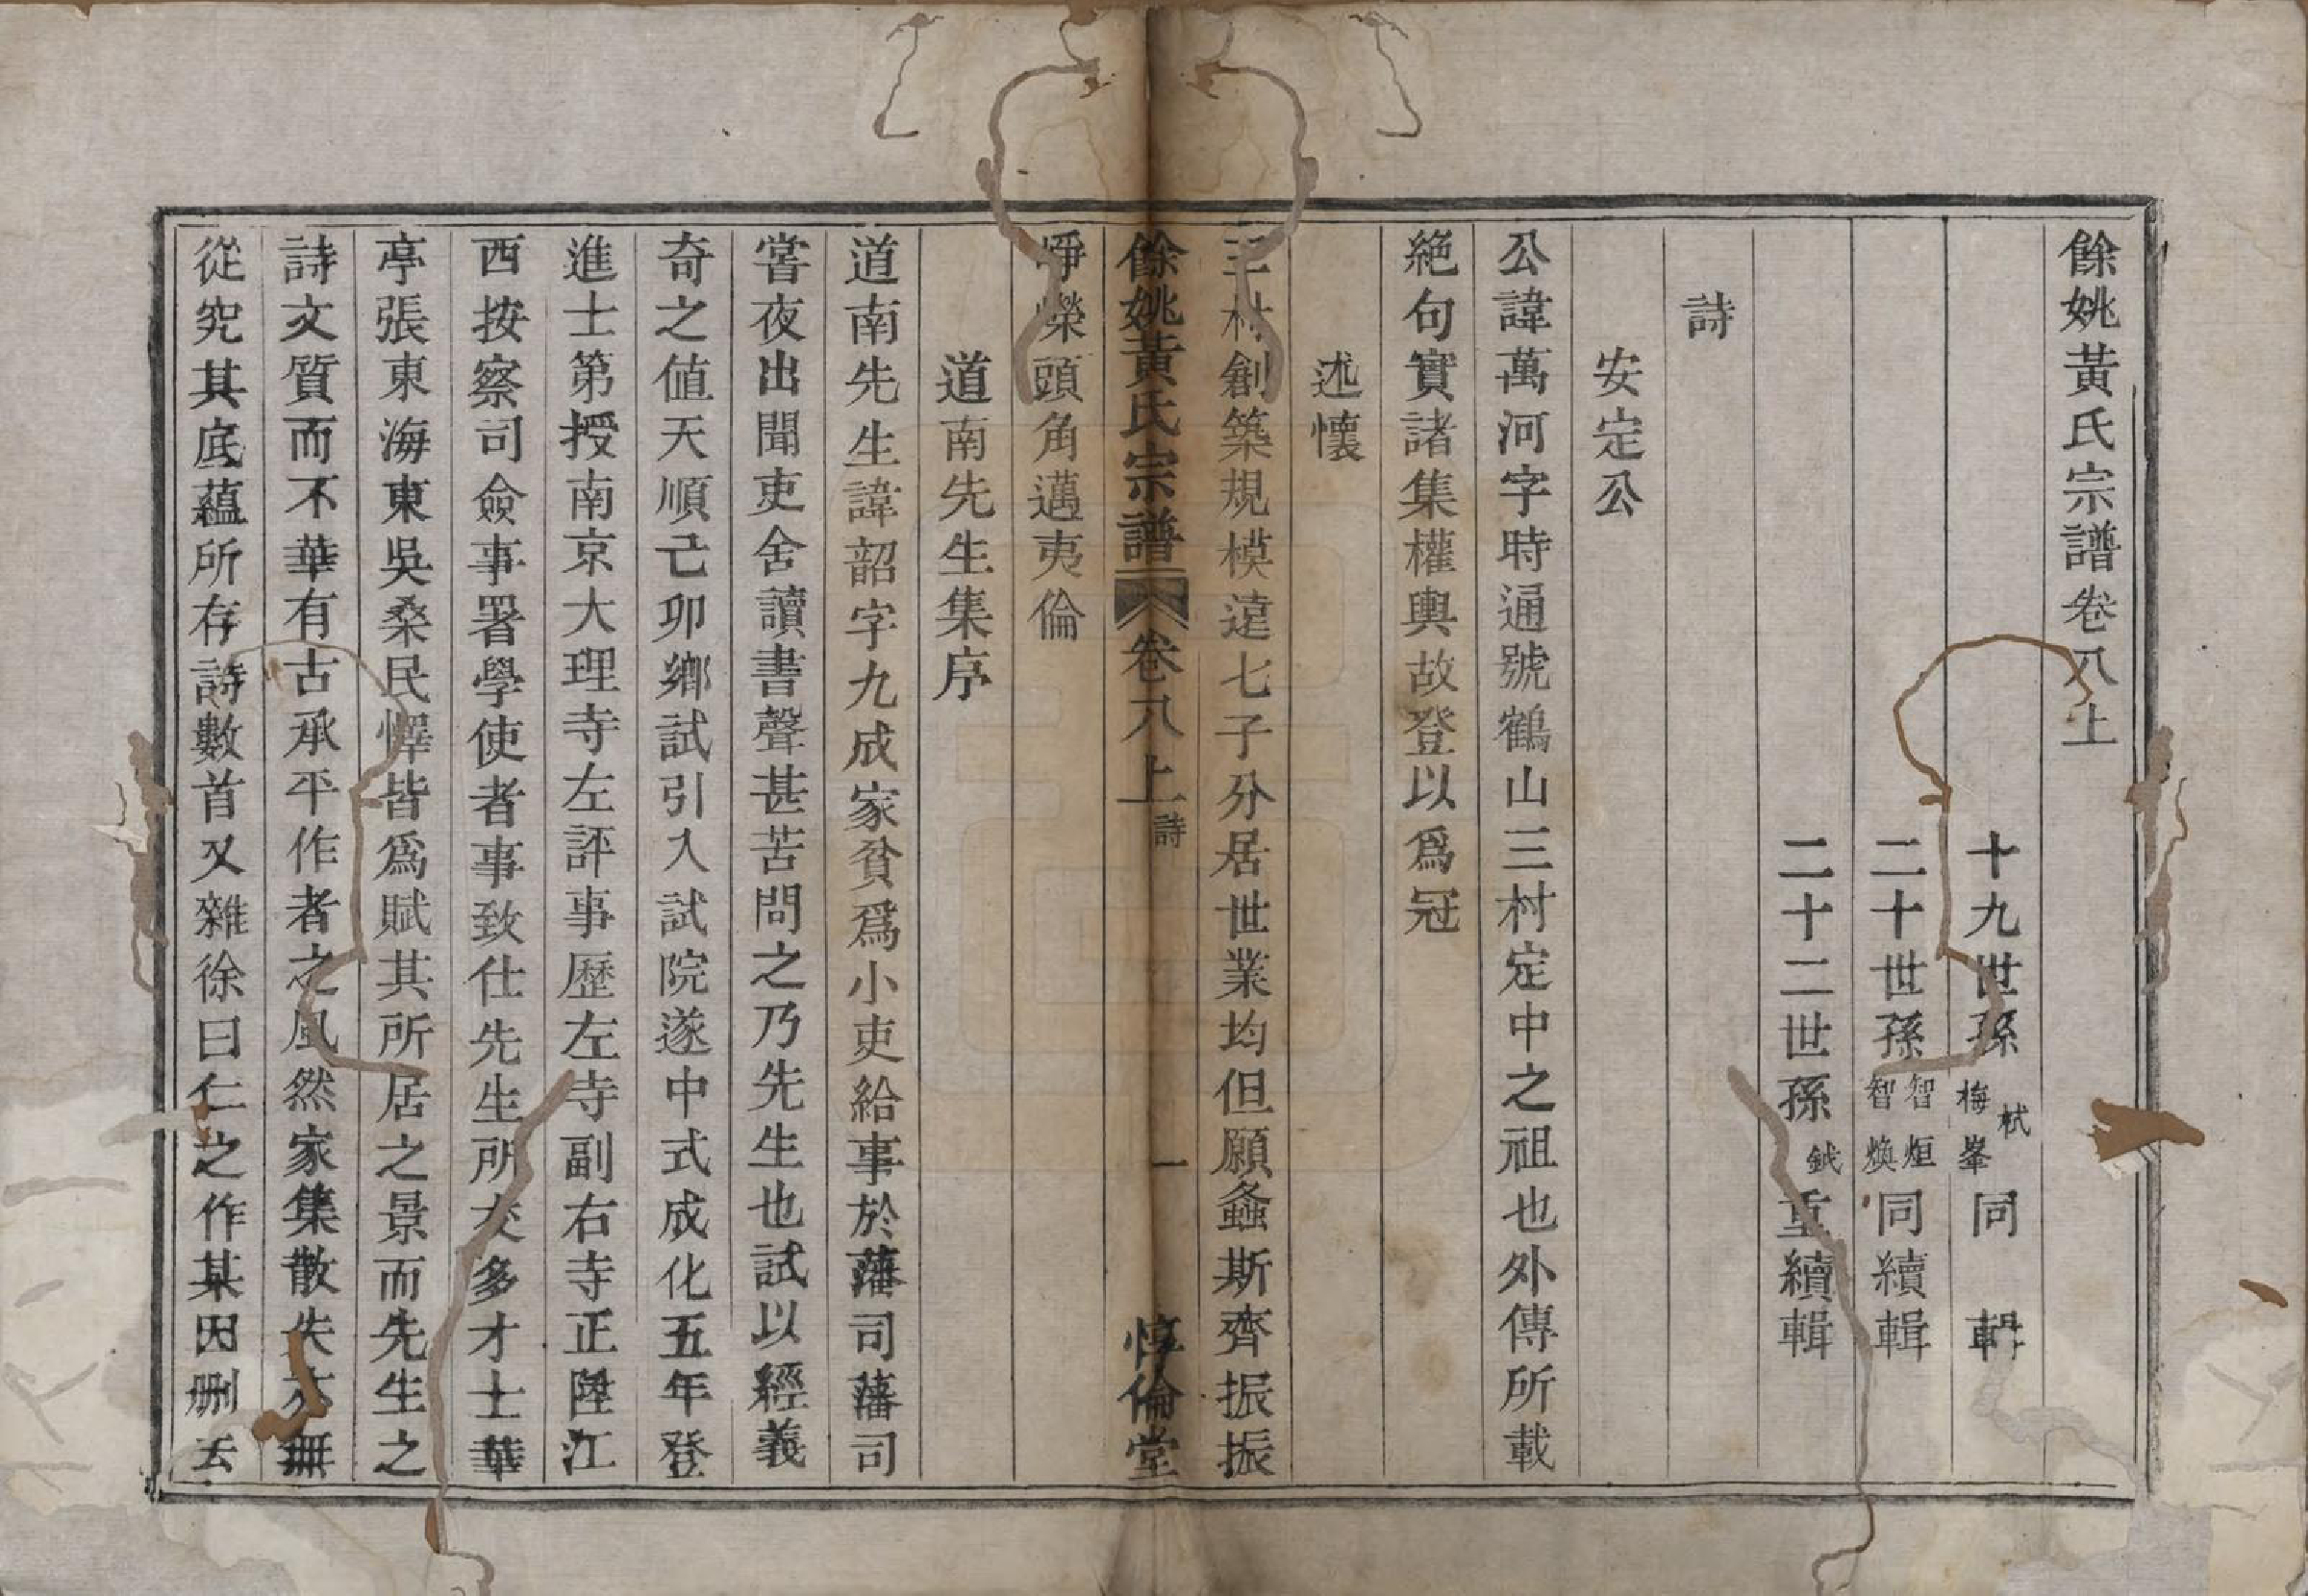 餘姚黃氏宗譜卷八上
十九世孫栻梅峯同輯
二十世孫智烜智煥同續輯
二十二世孫鉞重續輯
詩
安定公
公諱萬河字時通號鶴山三村定中之祖也外傳所載
絕句實諸集權輿故登以爲冠
述懷
三村創築規模遠七子分居世業均但願螽斯齊振振
餘姚黃氏宗譜 卷八上 詩 一 惇倫堂
崢嶸頭角邁夷倫
道南先生集序
道南先生諱韶字九成家貧爲小吏給事於藩司藩司
嘗夜出聞吏舍讀書聲甚苦問之乃先生也試以經義
奇之値天順己卯鄉試引入試院遂中式成化五年登
進士第授南京大理寺左評事歷左寺副右寺正陞江
西按察司僉事署學使者事致仕先生所交多才士華
亭張東海東吳桑民懌皆爲賦其所居之景而先生之
詩文質而不華有古承平作者之風然家集散失亦無
從究其底蘊所存詩數首又雜徐曰仁之作某因删去